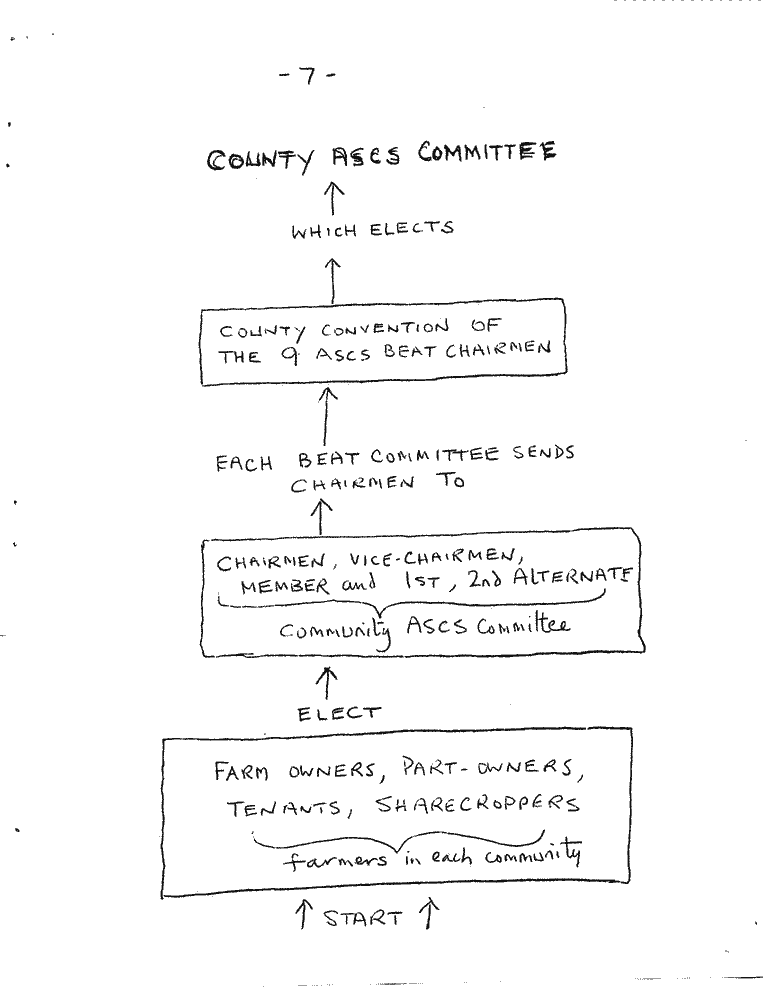 - 7 -
COUNTY ASCS COMMITTEE
WHICH ELECTS
COUNTY CONVENTION OF
THE 9 ASCS BEAT CHAIRMEN
EACH BEAT COMMITTEE SENDS
CHAIRMEN TO
CHAIRMEN, VICE-CHAIRMEN,
MEMBER and 1ST, 2nd ALTERNATE
COMMUNITY ASCS Committee
ELECT
FARM OWNERS, PART-OWNERS,
TENANTS, SHARECROPPERS
farmers in each community
START